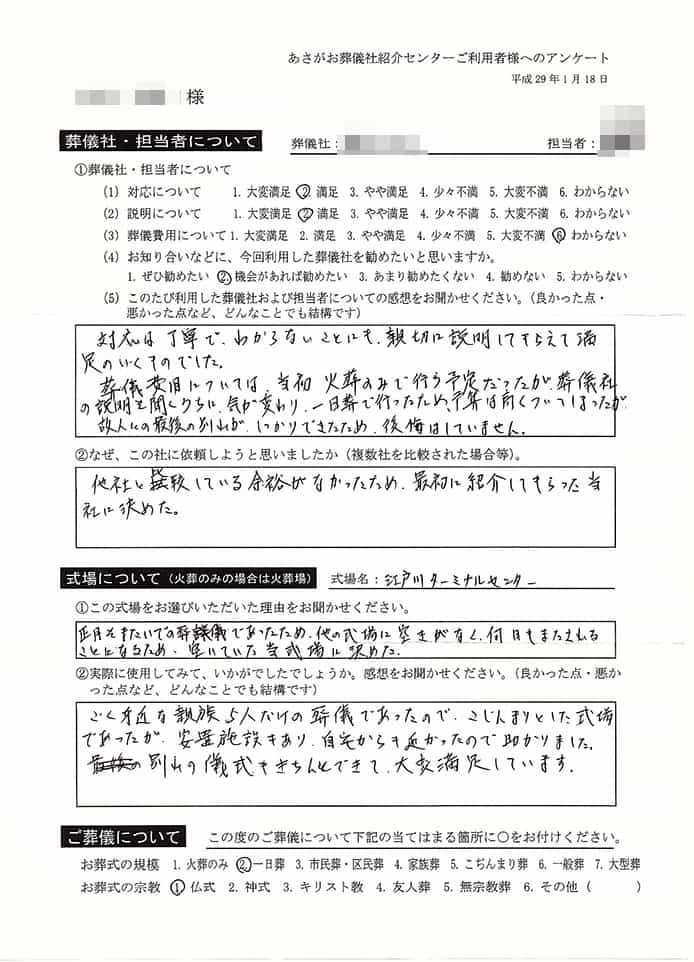 あさがお葬儀社紹介センターご利用者様へのアンケート
平成29年1月18日
様
葬儀社・担当者について 葬儀社： 担当者：
①葬儀社・担当者について
(1) 対応について 1. 大変満足 2. 満足 3. やや満足 4. 少々不満 5. 大変不満 6. わからない
(2) 説明について 1. 大変満足 2. 満足 3. やや満足 4. 少々不満 5. 大変不満 6. わからない
(3) 葬儀費用について 1. 大変満足 2. 満足 3. やや満足 4. 少々不満 5. 大変不満 6. わからない
(4) お知り合いなどに、今回利用した葬儀社を勧めたいと思いますか。
1. ぜひ勧めたい 2. 機会があれば勧めたい 3. あまり勧めたくない 4. 勧めない 5. わからない
(5) このたび利用した葬儀社および担当者についての感想をお聞かせください。（良かった点・
悪かった点など、どんなことでも結構です）
対応は丁寧で、わからないことにも、親切に説明してもらえて満
足のいくものでした。
葬儀費用については、当初 火葬のみで行う予定だったが、葬儀社
の説明を聞くうちに、気が変わり、一日葬で行ったため、予算は高くついてしまったが、
故人との最後の別れが、しっかりできたため、後悔はしていません。
②なぜ、この社に依頼しようと思いましたか（複数社を比較された場合等）。
他社と比較している余裕がなかったため、最初に紹介してもらった当
社に決めた。
式場について（火葬のみの場合は火葬場） 式場名：江戸川ターミナルセンター
①この式場をお選びいただいた理由をお聞かせください。
正月をまたいでの葬儀であったため、他の式場に空きがなく、何日もまたされる
ことになるため、空いていた当式場に決めた。
②実際に使用してみて、いかがでしたでしょうか。感想をお聞かせください。（良かった点・悪か
った点など、どんなことでも結構です）
ごく身近な親族5人だけの葬儀であったので、こじんまりとした式場
であったが、安置施設もあり、自宅からも近かったので助かりました。
別れの儀式もきちんとできて、大変満足しています。
ご葬儀について この度のご葬儀について下記の当てはまる箇所に○をお付けください。
お葬式の規模 1. 火葬のみ 2. 一日葬 3. 市民葬・区民葬 4. 家族葬 5. こぢんまり葬 6. 一般葬 7. 大型葬
お葬式の宗教 1. 仏式 2. 神式 3. キリスト教 4. 友人葬 5. 無宗教葬 6. その他（ ）